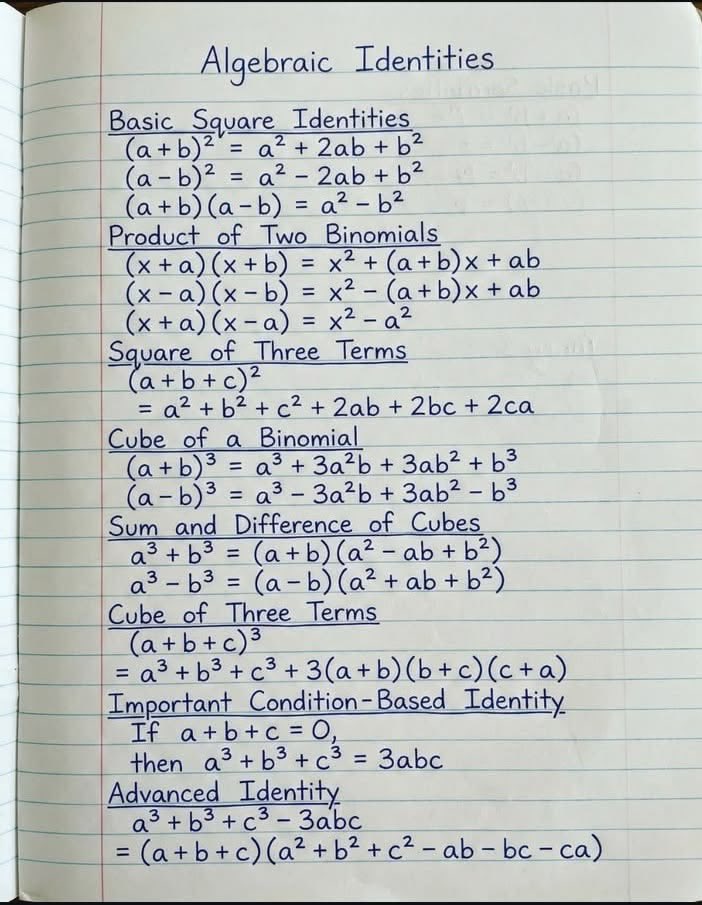 Algebraic Identities
Basic Square Identities
(a+b)² = a² + 2ab + b²
(a-b)² = a² - 2ab + b²
(a+b)(a-b) = a² - b²
Product of Two Binomials
(x+a)(x+b) = x² + (a+b)x + ab
(x-a)(x-b) = x² - (a+b)x + ab
(x+a)(x-a) = x² - a²
Square of Three Terms
(a+b+c)²
= a² + b² + c² + 2ab + 2bc + 2ca
Cube of a Binomial
(a+b)³ = a³ + 3a²b + 3ab² + b³
(a-b)³ = a³ - 3a²b + 3ab² - b³
Sum and Difference of Cubes
a³ + b³ = (a+b)(a² - ab + b²)
a³ - b³ = (a-b)(a² + ab + b²)
Cube of Three Terms
(a+b+c)³
= a³ + b³ + c³ + 3(a+b)(b+c)(c+a)
Important Condition-Based Identity
If a+b+c = 0,
then a³ + b³ + c³ = 3abc
Advanced Identity
a³ + b³ + c³ - 3abc
= (a+b+c)(a² + b² + c² - ab - bc - ca)